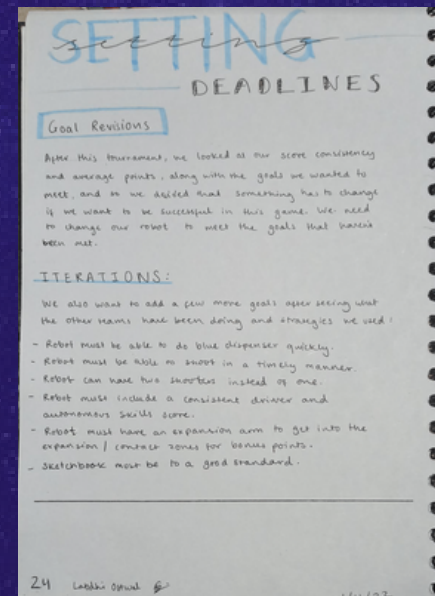 SETTING
setting
DEADLINES
Goal Revisions
After this tournament, we looked at our score consistency
and average points, along with the goals we wanted to
meet, and so we decided that something has to change
if we want to be successful in this game. We need
to change our robot to meet the goals that haven't
been met.
ITERATIONS:
We also want to add a few more goals after seeing what
the other teams have been doing and strategies we used:
- Robot must be able to do blue dispenser quickly.
- Robot must be able to shoot in a timely manner.
- Robot can have two shooters instead of one.
- Robot must include a consistent driver and
autonomous skills score.
- Robot must have an expansion arm to get into the
expansion / contact zones for bonus points.
- Sketchbook must be to a good standard.
24 Labdhi